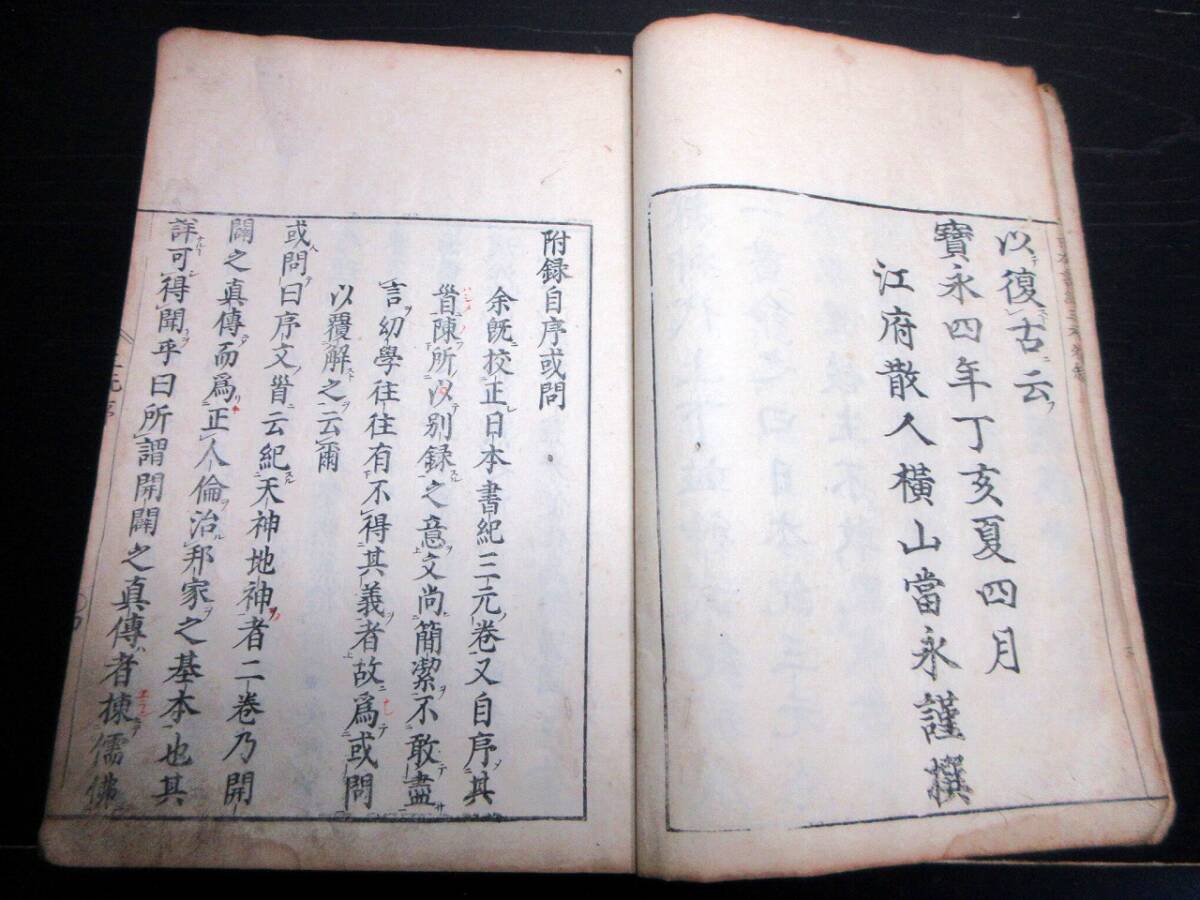 以復古云
寶永四年丁亥夏四月
江府散人橫山當永謹撰
附録自序或問
余既校正日本書紀三元卷又自序其
首陳所以別録之意文尚簡潔不敢盡
言幼學往往有不得其義者故爲或問
以覆解之云爾
或問曰序文首云紀天神地神者二卷乃開
闢之真傳而爲正人倫治邦家之基本也其
詳可得聞乎曰所謂開闢之真傳者揀儒佛